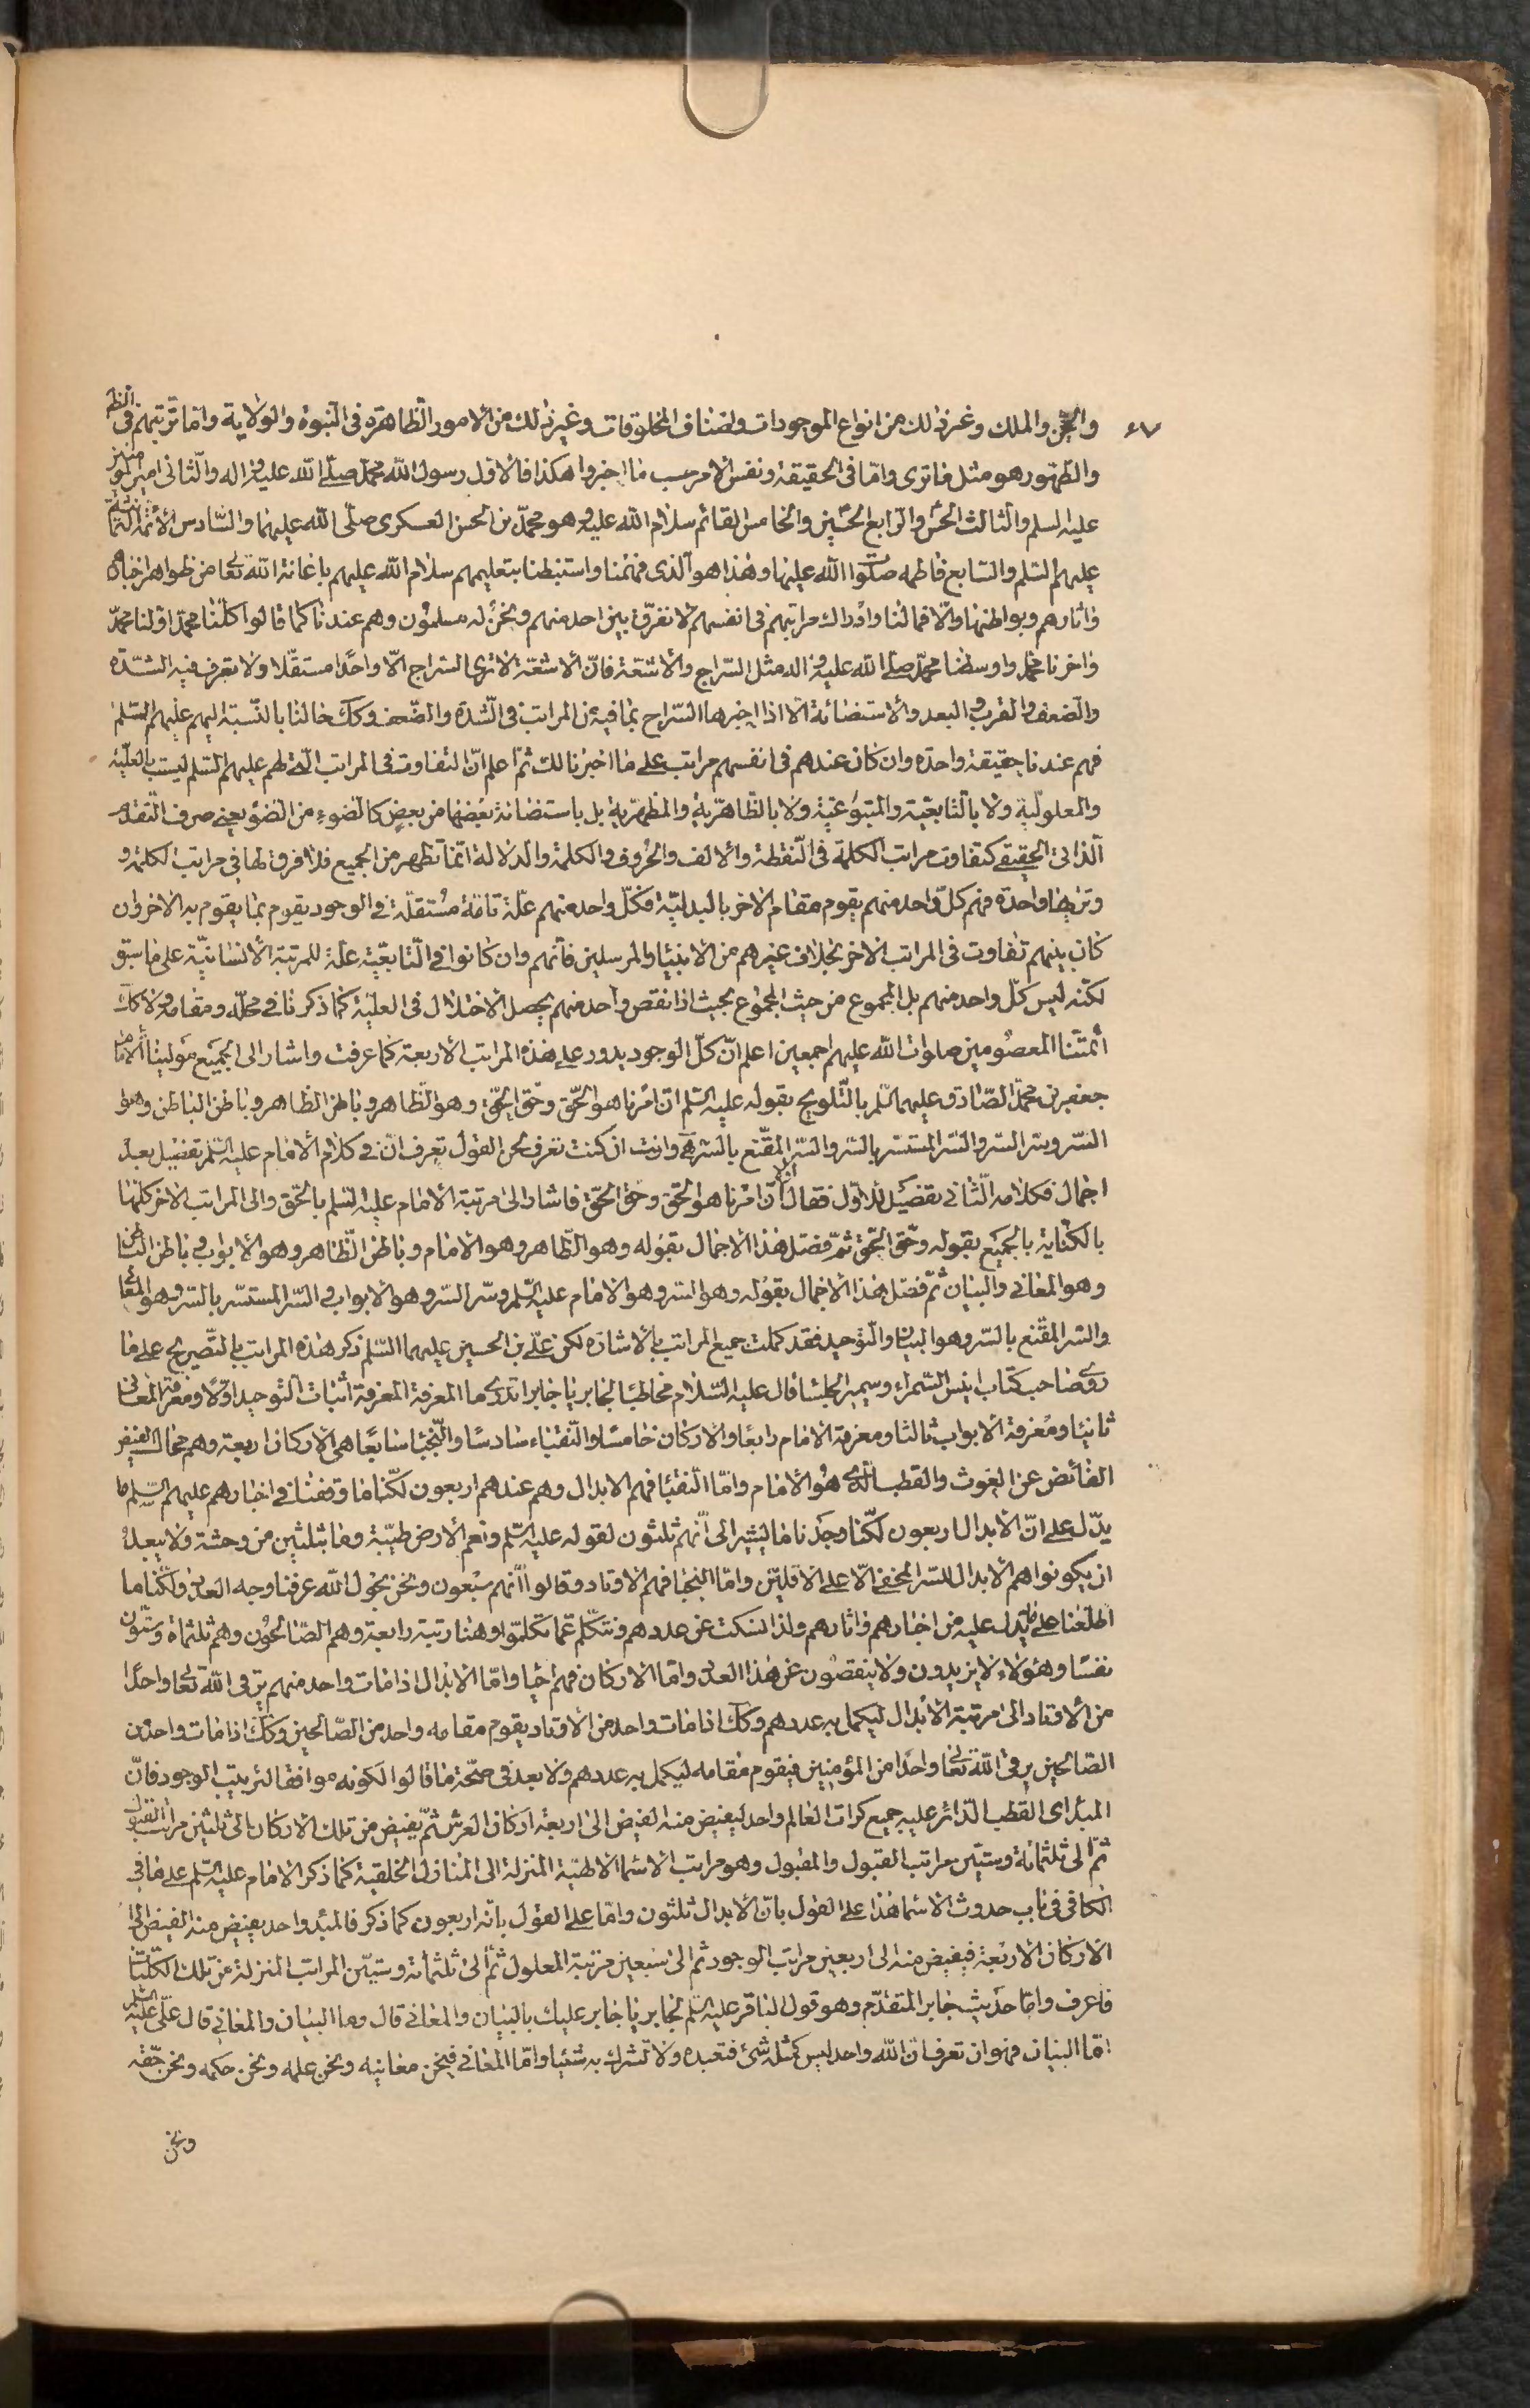 والجن والملك وغير ذلك من انواع الموجودات واصناف المخلوقات وغير ذلك من الامور الظاهرة فى النبوة والولاية واما ترتيبهم فى الظ
٤٧
والظهور هو مثل ما ترى واما فى الحقيقة ونفس الامر حسب ما اخبروا هكذا فالاول رسول الله محمد صلى الله عليه واله والثانى امير المؤمنين
عليه السلم والثالث الحسن والرابع الحسين والخامس القائم سلام الله عليه وهو محمد بن الحسن العسكرى صلى الله عليهما والسادس الائمة الثمانية
عليهم السلم والسابع فاطمه صلوا الله عليها وهذا هو الذى فهمنا واستنبطنا بتعليمهم سلام الله عليهم باعانة الله تعا من ظواهر اخبارهم
واثارهم وبواطنها والا فما لنا وادراك مراتبهم فى انفسهم لا نفرق بين احد منهم ونحن له مسلمون وهم عندنا كما قالوا كلنا محمد اولنا محمد
واخرنا محمد واوسطنا محمد صلى الله عليه واله مثل السراج والاشعة فان الاشعة لا ترى السراج الا واحدا مستقلا ولا تعرف فيه الشدة
والضعف والقرب والبعد والاستضائة الا اذا اخبرها السراج بما فيه من المراتب فى الشدة والضعف وكك حالنا بالنسبة اليهم عليهم السلم
فهم عندنا حقيقة واحدة وان كان عندهم فى انفسهم مراتب على ما اخبرنا لك ثم اعلم ان التفاوت فى المراتب التى لهم عليهم السلم ليست بالعلية
والمعلولية ولا بالتابعية والمتبوعية ولا بالظاهرية والمظهرية بل باستضائة بعضها من بعض كالضوء من الضوء يعنى صرف التقدم
الذاتى الحقيقى كتفاوت مراتب الكلمة فى النقطة والالف والحروف والكلمة والدلالة انما تظهر من الجميع فلا فرق لها فى مراتب الكلمة و
وترها واحدة فهم كل واحد منهم يقوم مقام الاخر بالبدلية فكل واحد منهم علة تامة مستقلة فى الوجود يقوم بما يقوم به الاخر وان
كان بينهم تفاوت فى المراتب الاخر بخلاف غيرهم من الانبيا والمرسلين فانهم وان كانوا فى التابعية علة للمرتبة الانسانية على ما سبق
لكنه ليس كل واحد منهم بل المجموع من حيث المجموع بحيث اذا نقص واحد منهم يحصل الاختلال فى العلية كما ذكرنا فى محله ومقامه ولا كك
ائمتنا المعصومين صلوات الله عليهم اجمعين اعلم ان كل الوجود يدور على هذه المراتب الاربعة كما عرفت واشار الى الجميع مولينا الامام
جعفر بن محمد الصادق عليهما السلم بالتلويح بقوله عليه السلم ان امرنا هو الحق وحق الحق وهو الظاهر وباطن الظاهر وباطن الباطن وهو
السر وسر السر والسر المستسر بالسر والسر المقنع بالسر هى وانت ان كنت تعرف لحن القول تعرف ان فى كلام الامام عليه السلم تفصيل بعد
اجمال فكلامه الثانى تفصيل للاول فقال اولا ان امرنا هو الحق وحق الحق فاشار الى مرتبة الامام عليه السلم بالحق والى المراتب الاخر كلها
بالكناية بالجميع بقوله وحق الحق ثم فصل هذا الاجمال بقوله وهو الظاهر وهو الامام وباطن الظاهر وهو الابواب وباطن الباطن
وهو المعانى والبيان ثم فصل هذا الاجمال بقوله وهو السر وهو الامام عليه السلم وسر السر وهو الابواب والسر المستسر بالسر وهو المعانى
والسر المقنع بالسر وهو البيان والتوحيد فقد كملت جميع المراتب بالاشارة لكن على بن الحسين عليهما السلم ذكر هذه المراتب بالتصريح على ما
روى صاحب كتاب انيس السمراء وسمير الجلسا قال عليه السلام مخاطبا لجابر يا جابر اتدرى ما المعرفة المعرفة اثبات التوحيد اولا ومعرفة المعانى
ثانيا ومعرفة الابواب ثالثا ومعرفة الامام رابعا والاركان خامسا والنقباء سادسا والنجبا سابعا هى الاركان اربعة وهم محال الفيض
الفائض عن الغوث والقطب الذى هو الامام واما النقبا فهم الابدال وهم عندهم اربعون لكنا ما وقفنا فى اخبارهم عليهم السلم ما
يدل على ان الابدال اربعون لكنا وجدنا ما يشير الى انهم ثلثون لقوله عليه السلم ونعم الارض طيبة وما بثلثين من وحشة ولا يبعد
ان يكونوا هم الابدال للسر المخفى الا على الاقلين واما النجبا فهم الاوتاد وقالوا انهم سبعون ونحن بحول الله عرفنا وجه العدد ولكنا ما
اطلعنا على ما يدل عليه من اخبارهم واثارهم ولذا نسكت عن عددهم ونتكلم عما تكلموا وهنا رتبة رابعة وهم الصالحون وهم ثلثماة وستون
نفسا وهؤلاء لا يزيدون ولا ينقصون عن هذا العدد واما الاركان فهم احيا واما الابدال اذا مات واحد منهم يرقى الله تعا واحدا
من الاوتاد الى مرتبة الابدال ليكمل به عددهم وكك اذا مات واحد من الاوتاد يقوم مقامه واحد من الصالحين وكك اذا مات واحد من
الصالحين يرقى الله تعا واحدا من المؤمنين فيقوم مقامه ليكمل به عددهم ولا بعد فى صحة ما قالوا لكونه موافقا لترتيب الوجود فان
المبدا اى القطب الدائر عليه جميع كرات العالم واحد ليفيض منه الفيض الى اربعة اركان العرش ثم يفيض من تلك الاركان الى ثلثين مراتب القبول
ثم الى ثلثمائة وستين مراتب القبول والمقبول وهو مراتب الاسما الالهية المنزلة الى المنازل الخلقية كما ذكر الامام عليه السلم على ما فى
الكافى فى باب حدوث الاسما هذا على القول بان الابدال ثلثون واما على القول بانه اربعون كما ذكر فالمبدء واحد يفيض منه الفيض الى
الاركان الاربعة فيفيض منه الى اربعين مراتب الوجود ثم الى سبعين مرتبة المعلول ثم الى ثلثمائة وستين المراتب المنزلة عن تلك الكليات
فاعرف واما حديث جابر المتقدم وهو قول الباقر عليه السلم لجابر يا جابر عليك بالبيان والمعانى قال وما البيان والمعانى قال على عليه السلم
اما البيان فهو ان تعرف ان الله واحد ليس كمثله شئ فتعبده ولا تشرك به شئيا واما المعانى فنحن معانيه ونحن علمه ونحن حكمه ونحن حقه
ونحن